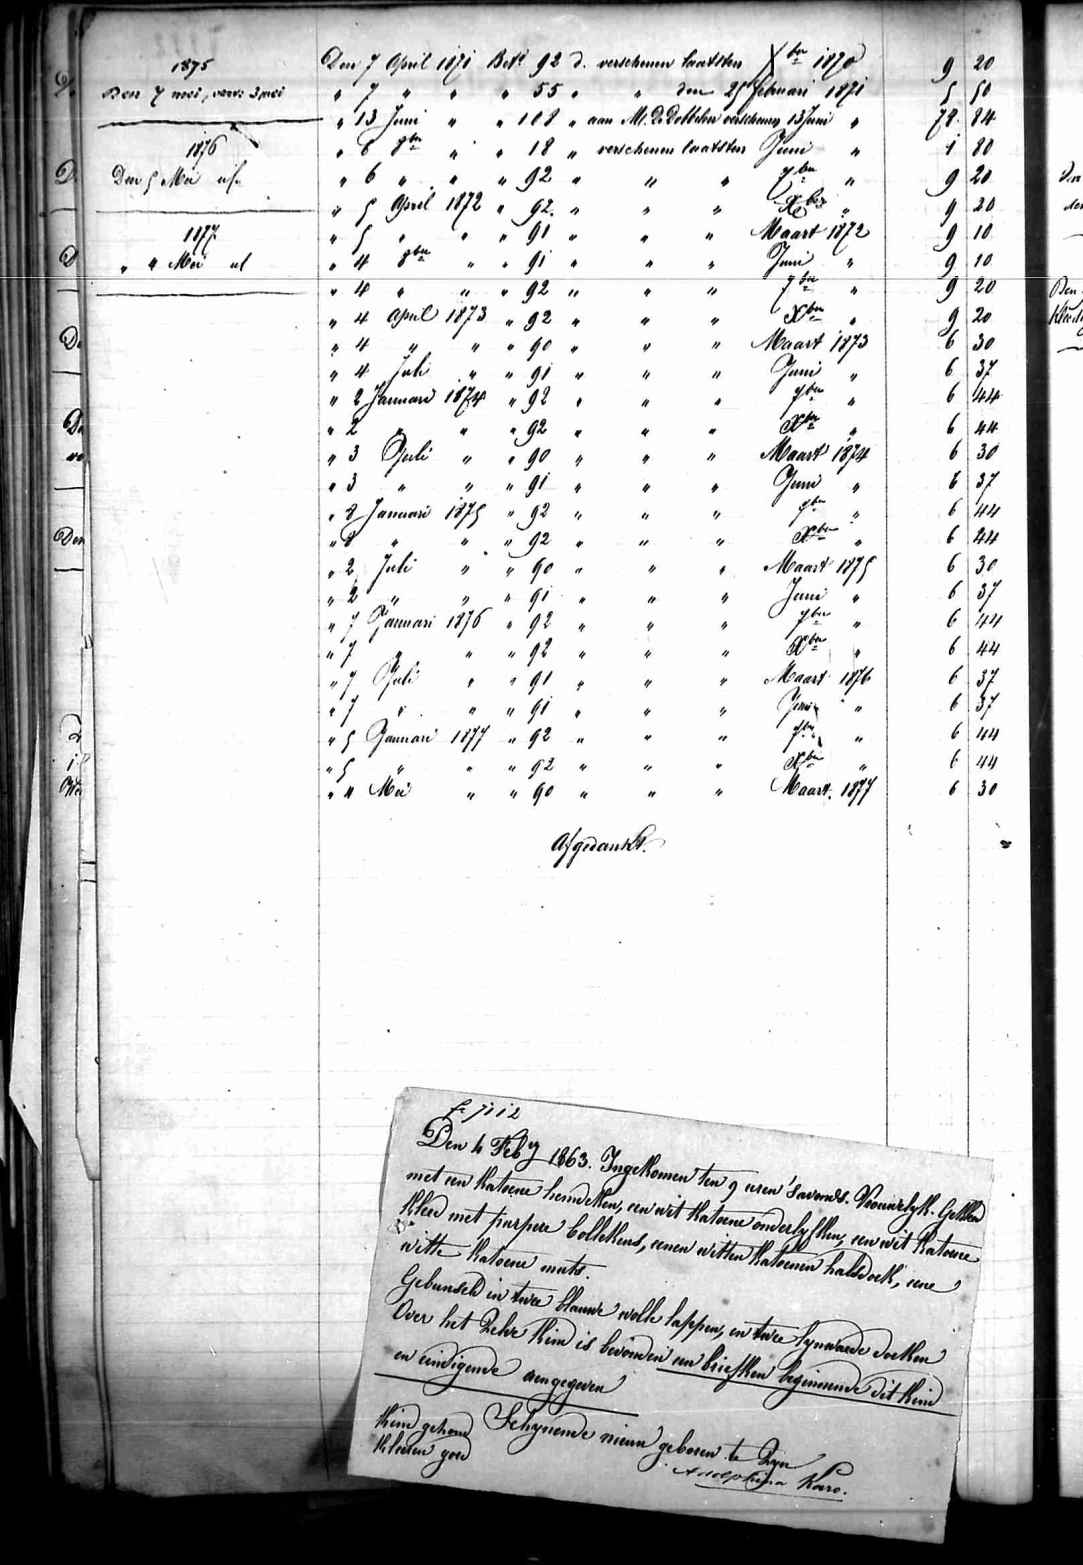 1875
Den 7 mei, verv: 3 mei
1876
Den 5 Mei id.
1877
" 4 Mei id
Den 7 April 1871 Bet. 92 d. verschenen laatsten Xber 1870 9 20
" 7 " " " 55 " " den 25 februari 1871 5 50
" 13 Juni " " 108 " aan M. De verschenen 13 Juni " 78 84
" 6 8ber " " 18 " verschenen laatsten Juni " 1 80
" 6 " " " 92 " " " 7ber " 9 20
" 5 April 1872 " 92 " " " Xber " 9 20
" 5 " " " 91 " " " Maart 1872 9 10
" 4 8ber " " 91 " " " Juni " 9 10
" 4 " " " 92 " " " 7ber " 9 20
" 4 April 1873 " 92 " " " Xber " 9 20
" 4 " " " 90 " " " Maart 1873 6 30
" 4 Juli " " 91 " " " Juni " 6 37
" 2 Januari 1874 " 92 " " " 7ber " 6 44
" 2 " " " 92 " " " Xber " 6 44
" 3 Juli " " 90 " " " Maart 1874 6 30
" 3 " " " 91 " " " Juni " 6 37
" 8 Januari 1875 " 92 " " " 7ber " 6 44
" 8 " " " 92 " " " Xber " 6 44
" 2 Juli " " 90 " " " Maart 1875 6 30
" 2 " " " 91 " " " Juni " 6 37
" 7 Januari 1876 " 92 " " " 7ber " 6 44
" 7 " " " 92 " " " Xber " 6 44
" 7 Juli " " 91 " " " Maart 1876 6 37
" 7 " " " 91 " " " Juni " 6 37
" 5 Januari 1877 " 92 " " " 7ber " 6 44
" 5 " " " 92 " " " Xber " 6 44
" 4 Mei " " 90 " " " Maart 1877 6 30
Afgedankt.
Den 4 Feby 1863. Ingekomen ten 9 uren 's avonds. Vrouwelyk. Gekleed
met een katoene hemdeken, een wit katoene onderlyfken, een wit katoene
kleed met purpere bollekens, eenen witten katoenen halsdoek, eene
witte katoene muts.
Gebunseld in twee blauwe wolle lappen, en twee lynwaede doeken
Over het zelve kind is bevonden een briefken beginnende dit kind
en eindigende aengegeven
Schynende nieuw geboren te zyn
Kind gezond
Kleeren goed
Adolphina Karo.